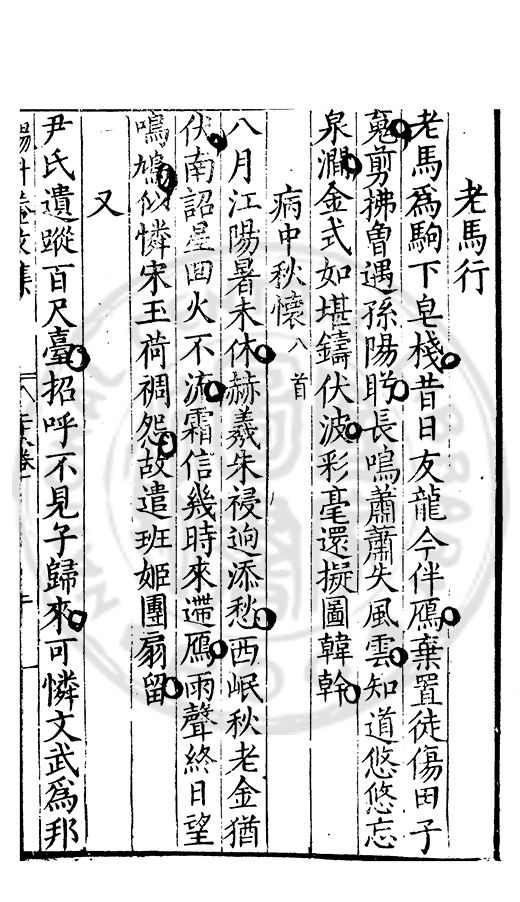 老馬行
老馬爲駒下皂棧昔日友龍今伴鴈棄置徒傷田子
剪拂曽遇孫陽眄長鳴蕭蕭失風雲知道悠悠忘
泉澗金式如堪鑄伏波彩毫還擬圖韓幹
病中秋懷八首
八月江陽暑未休赫羲朱祲逈添愁西岷秋老金猶
伏南詔星回火不流霜信幾時來滯鴈雨聲終日望
鳴鳩似憐宋玉荷裯怨故遣班姬團扇留
又
尹氏遺蹤百尺臺招呼不見子歸來可憐文武爲邦
楊升菴文集